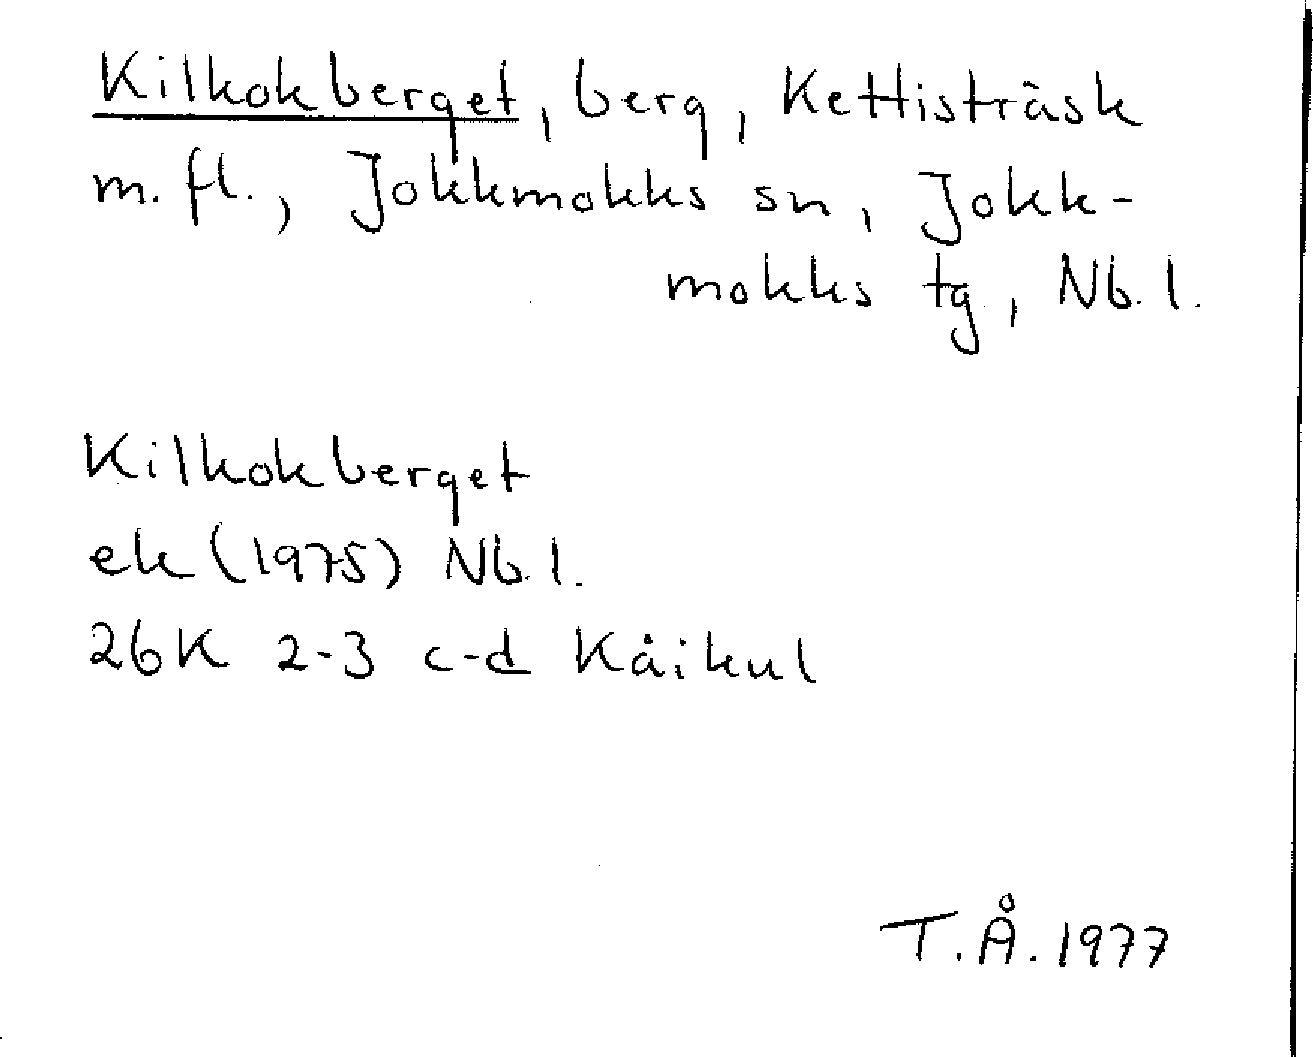 Kilkokberget, berg, Kettisträsk
m. fl., Jokkmokks sn, Jokk-
mokks tg, Nb. l.
Kilkokberget
ek (1975) Nb. l.
26K 2-3 c-d Kåikul
T.Å. 1977